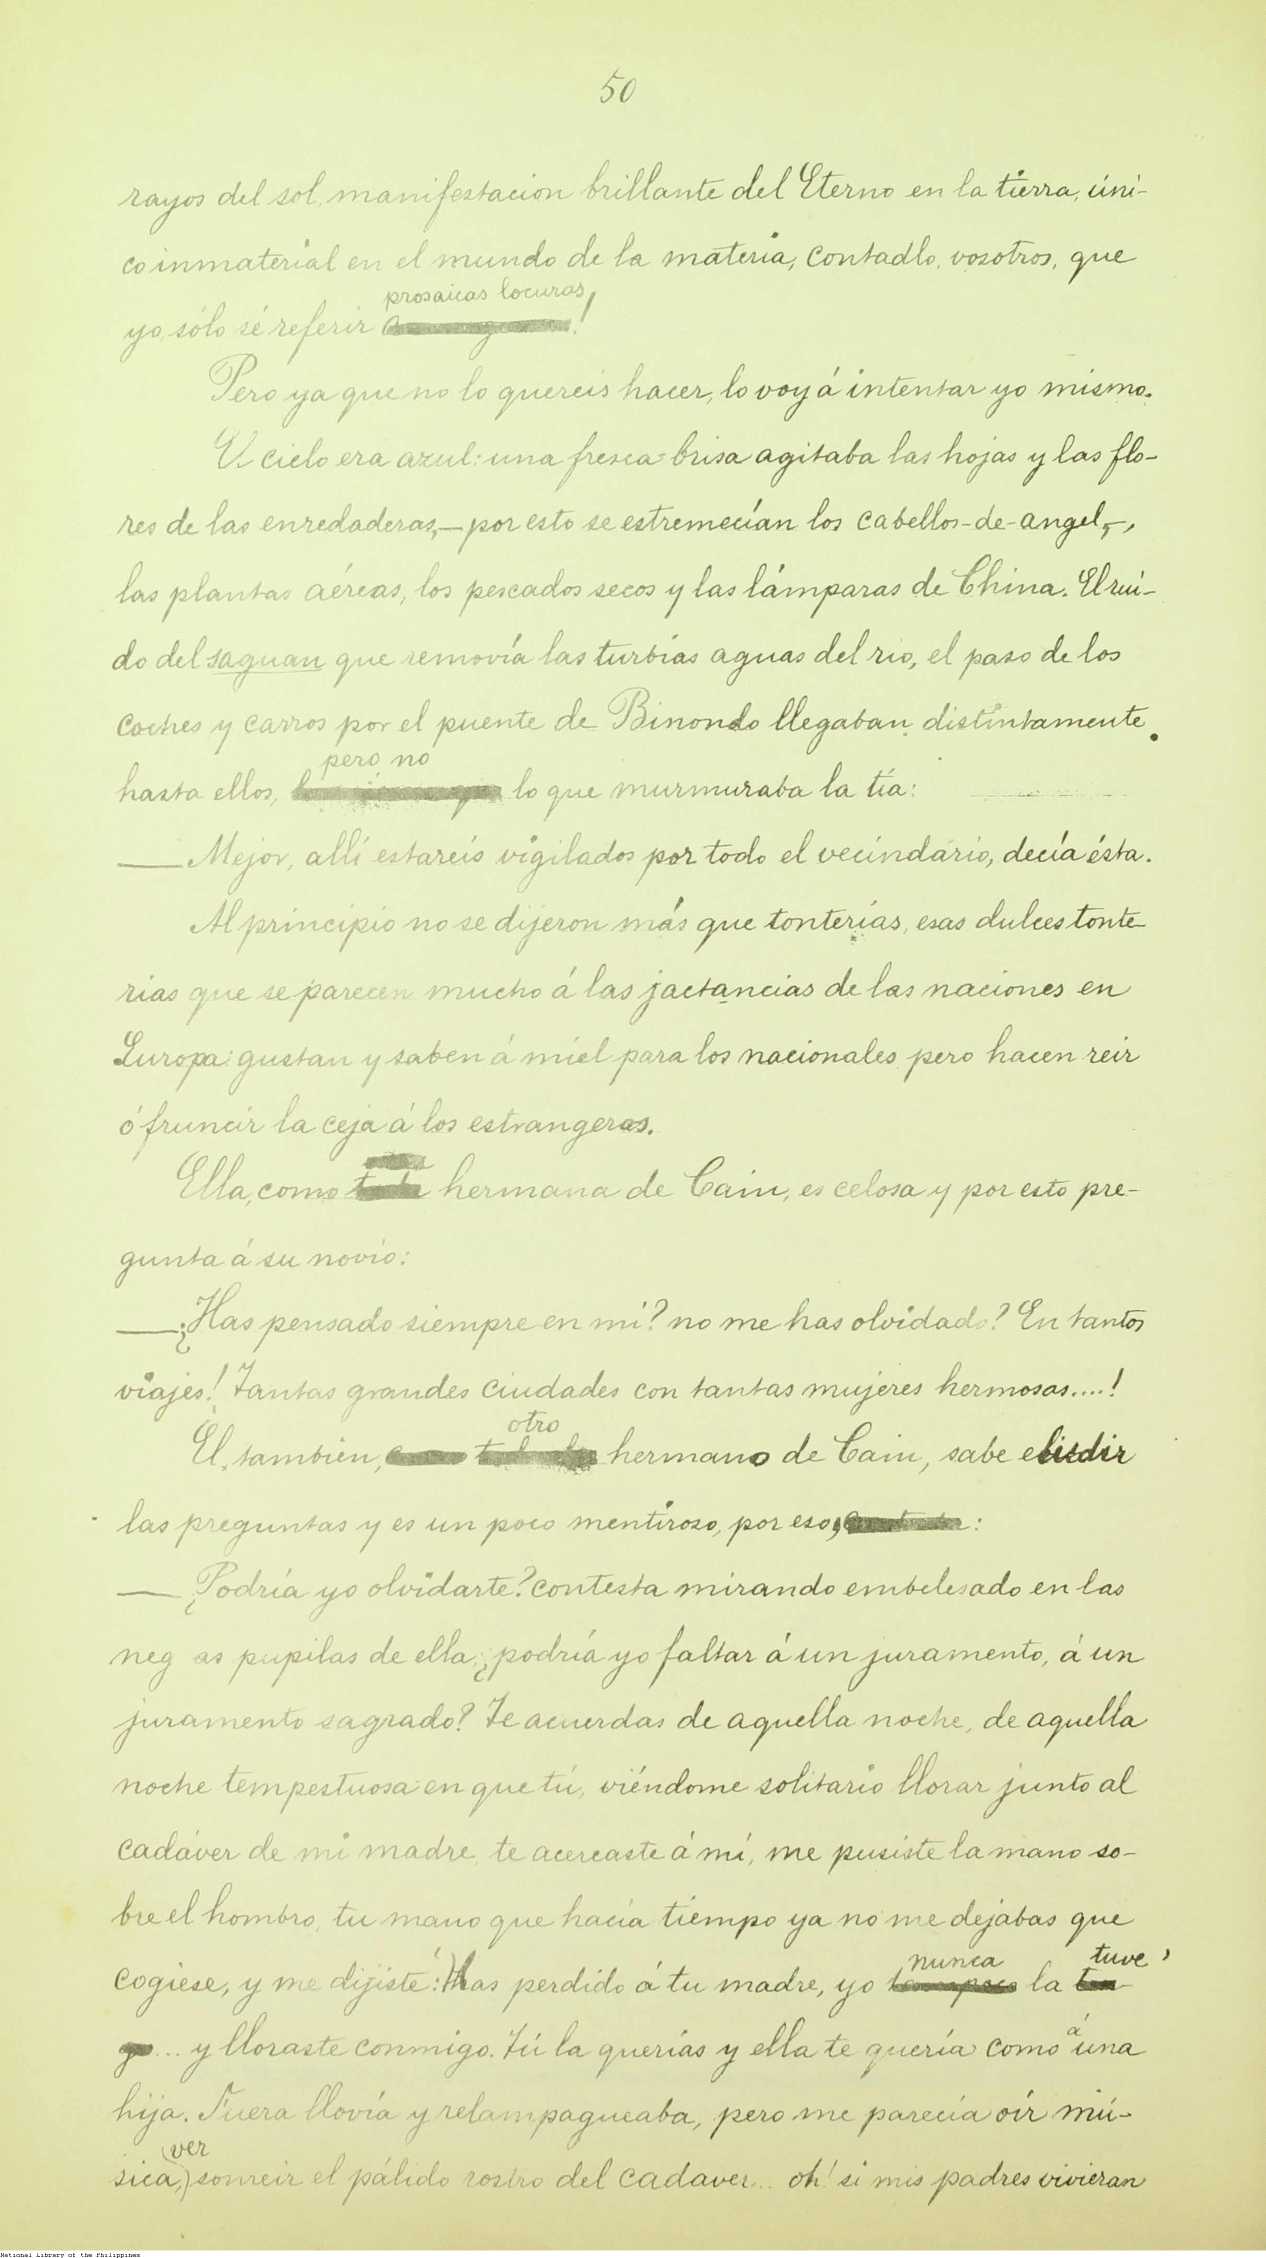 50
rayos del sol, manifestacion brillante del Eterno en la tierra, úni-
co inmaterial en el mundo de la materia, contadlo, vosotros, que
prosaicas locuras!
yo, sólo sé referir
Pero ya que no lo quereis hacer, lo voy á intentar yo mismo.
El cielo era azul: una fresca brisa agitaba las hojas y las flo-
res de las enredaderas,—por esto se estremecían los cabellos-de-angel,-,
las plantas aéreas, los pescados secos y las lámparas de China. El rui-
do del saguan que removía las turbias aguas del rio, el paso de los
coches y carros por el puente de Binondo llegaban distintamente
pero no
hasta ellos, lo que murmuraba la tía:
—Mejor, allí estareis vigilados por todo el vecindario, decía ésta.
Al principio no se dijeron más que tonterías, esas dulces tonte-
rias que se parecen mucho á las jactancias de las naciones en
Europa: gustan y saben á miel para los nacionales pero hacen reir
ó fruncir la ceja á los estrangeros.
Ella, como hermana de Cain, es celosa y por esto pre-
gunta á su novio:
—¿Has pensado siempre en mi? no me has olvidado? En tantos
viajes! Tantas grandes ciudades con tantas mujeres hermosas....!
otro
El, tambien, hermano de Cain, sabe eludir
las preguntas y es un poco mentiroso, por eso,:
—¿Podría yo olvidarte? contesta mirando embelesado en las
neg as pupilas de ella; ¿podría yo faltar á un juramento, á un
juramento sagrado? Te acuerdas de aquella noche, de aquella
noche tempestuosa en que tú, viéndome solitario llorar junto al
cadáver de mi madre, te acercaste á mí, me pusiste la mano so-
bre el hombro, tu mano que hacía tiempo ya no me dejabas que
nunca tuve
cogiese, y me dijiste: Has perdido á tu madre, yo la
... y lloraste conmigo. Tú la querías y ella te quería como á una
hija. Fuera llovía y relampagueaba, pero me parecía oír mú-
ver
sica, sonreir el pálido rostro del cadaver... oh! si mis padres vivieran
National Library of the Philippines